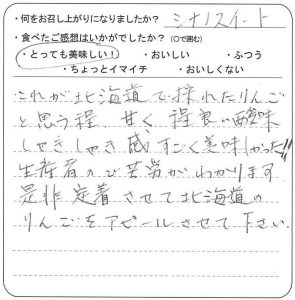 ・何をお召し上がりになりましたか？ シナノスイート
・食べたご感想はいかがでしたか？（○で囲む）
・とっても美味しい！ ・おいしい ・ふつう
・ちょっとイマイチ ・おいしくない
これが北海道で採れたりんご
と思う程 甘く 程良い酸味
しゃきしゃき感 すごく美味しかった!!
生産者のご苦労がわかります
是非定着させて北海道の
りんごをアピールさせて下さい.